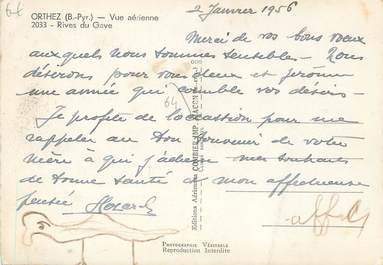 64
ORTHEZ (B.-Pyr.) — Vue aérienne
2033 - Rives du Gave
2 Janvier 1956
Merci de vos bons voeux
auxquels nous sommes sensibles - Nous
désirons pour vous deux et Jérôme
une année qui comble vos désirs -
64
Je profite de l'occassion pour me
rappeler au bon souvenir de votre
mère à qui j'adresse mes souhaits
de bonne santé & mon affectueuse
pensée
Editions Aériennes COMBIER IMP. MACON
PHOTOGRAPHIE VÉRITABLE
Reproduction Interdite